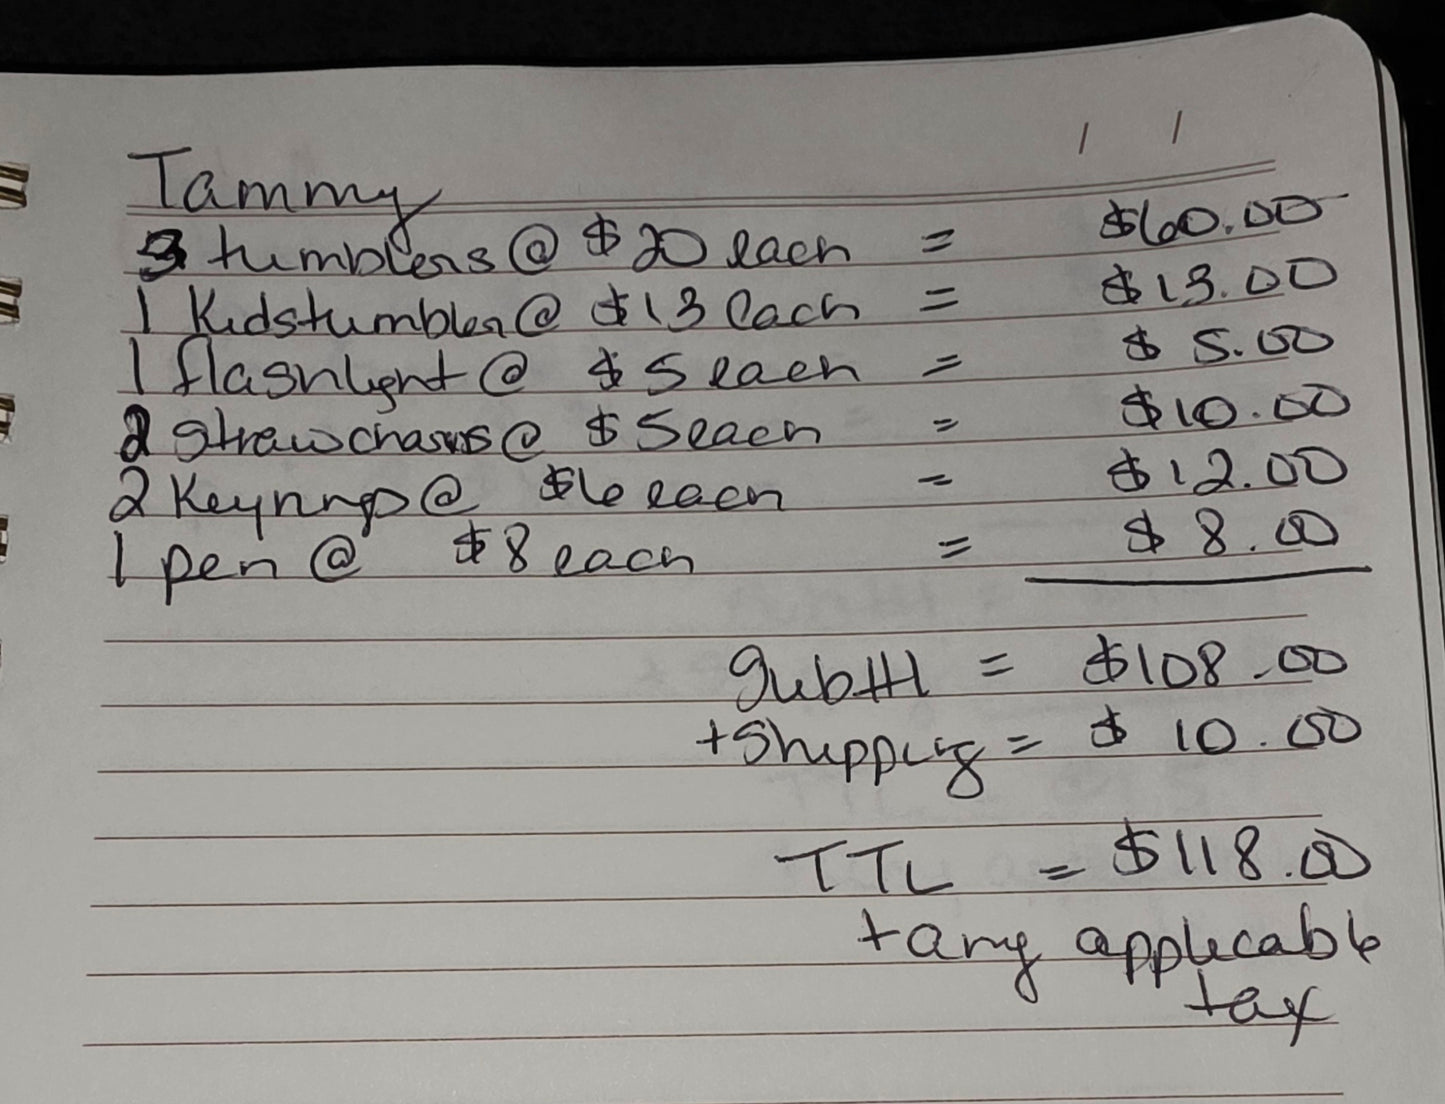 / /
Tammy
3 tumblers @ $20 each = $60.00
1 Kidstumbler @ $13 each = $13.00
1 flashlight @ $5 each = $5.00
2 strawcharms @ $5 each = $10.00
2 Keyrings @ $6 each = $12.00
1 pen @ $8 each = $8.00
Subttl = $108.00
+Shipping = $10.00
TTL = $118.00
+ any applicable
tax